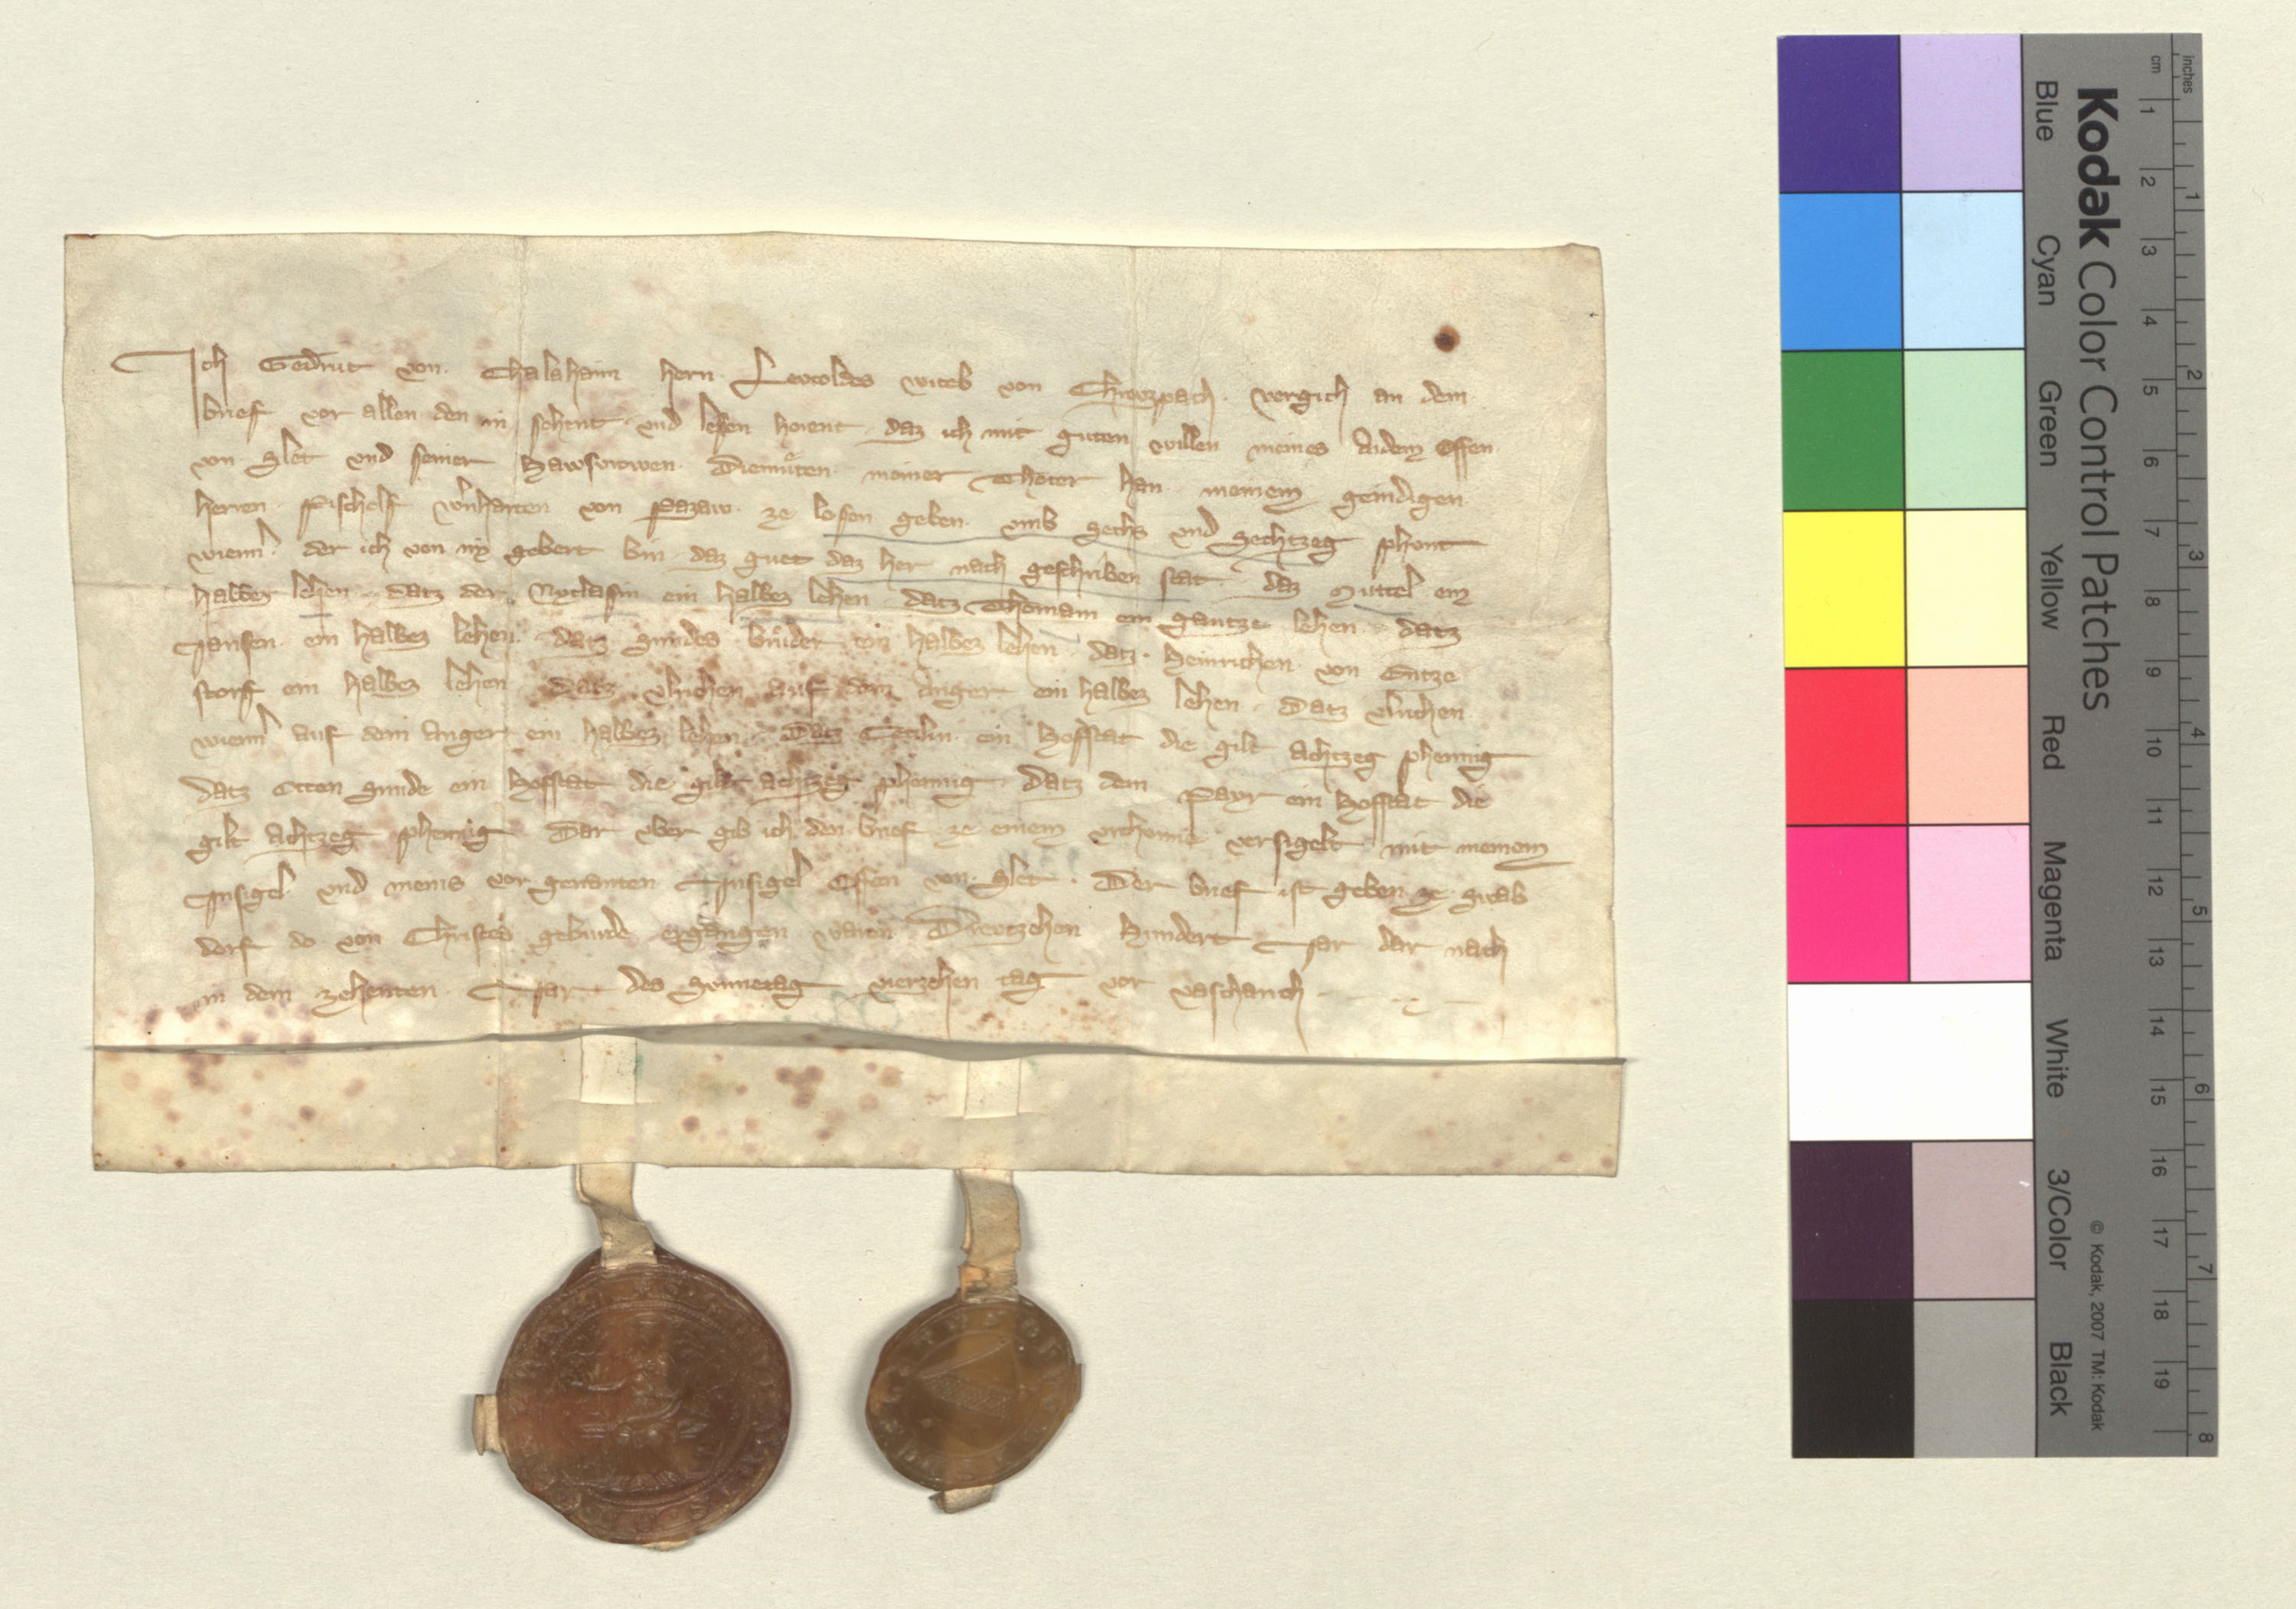 Ich Gedrut von Chalahaim hern Levtoldes witeb von Chrevzpach vergich an dem
brief vor allen den in sehent vnd lesen horent daz ich mit guten willen meines Aidem Offen
von Slet vnd seiner Hawsvrowen Diemůten meiner Thoter han meinem genidigen
herren Pischolf Wernharten von Pazaw ze losen geben vmb Sechs vnd Sechtzeg phont
wienn der ich von im gebert bin daz guet daz her nach geschriben stat daz Mittel ein
halbez lehen datz der Nyclasin ein halbez lehen datz Thomam ein gantze lehen datz
Jansen ein halbez lehen datz Smides bruͤder ein halbez lehen datz Heinrichen von Entze
storff ein halbez lehen Datz vlrichen auf dem Anger ein halbez lehen Datz vlrichen
wienn auf dem Anger ein halbez lehen Datz Cecilin ein Hofstat die gilt achtzeg phennig
Datz Otten Smide ein Hofstat die gilt achzeg phennig Datz dem Payr ein Hofstat die
gilt Achtzeg phennig Dar vber gib ich den brief ze einem vrchunne versigelt mit meinem
Insigel vnd meins vor genanten Insigel Offen von Slet Der brief ist geben ze Swab
dorf do von Christes geburde ergangen waren Drevtzehen Hundert Jar dar nach
in dem zehenten Jar des Svnnetag vierzehen tag vor vaschanch
Kodak Color Control Patches
Blue Cyan Green Yellow Red Magenta White 3/Color Black
© Kodak, 2007 TM: Kodak
cm 1 2 3 4 5 6 7 8 9 10 11 12 13 14 15 16 17 18 19
inches 1 2 3 4 5 6 7 8